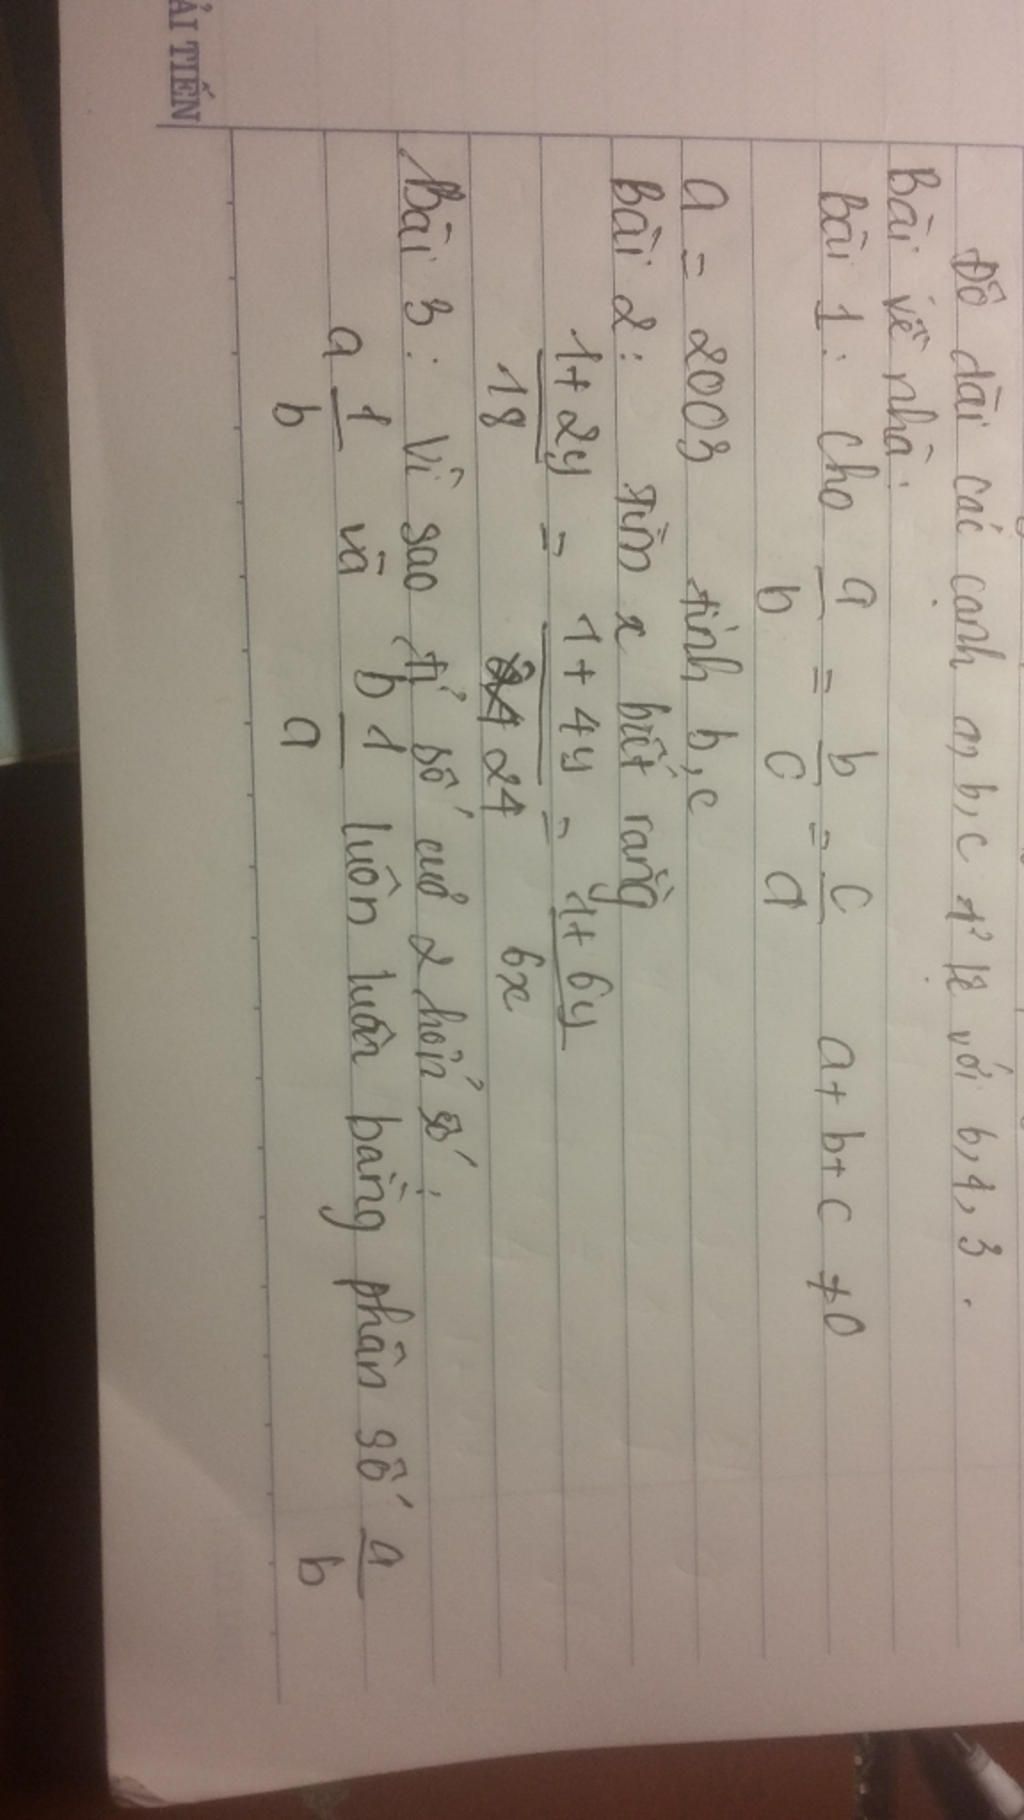 Độ dài các cạnh a, b, c tỉ lệ với 6, 4, 3.
Bài về nhà:
Bài 1: Cho a/b = b/c = c/a a + b + c ≠ 0
a = 2003 tính b, c
Bài 2: tìm x biết rằng
1 + 2y / 18 = 1 + 4y / 24 = 1 + 6y / 6x
Bài 3: Vì sao tỉ số của 2 hỗn số:
a 1/b và b 1/a luôn luôn bằng phân số a/b
ẢI TIẾN